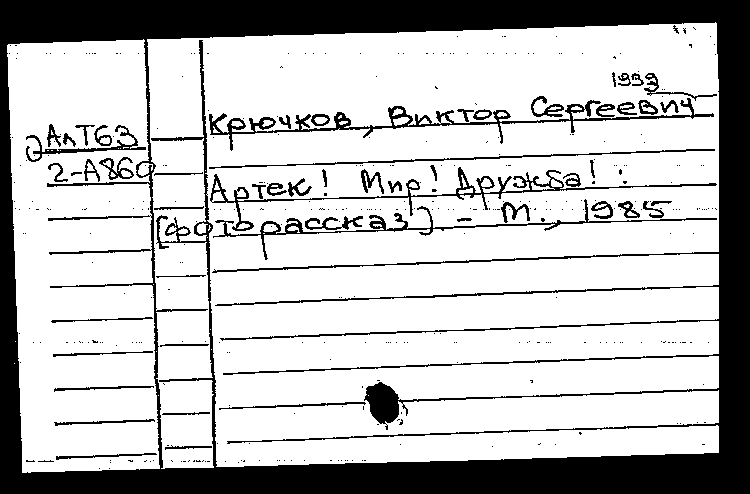 1939
Крючков, Виктор Сергеевич
АлТ63
2-А860
Артек! Мир! Дружба! :
[фоторассказ]. - М., 1985